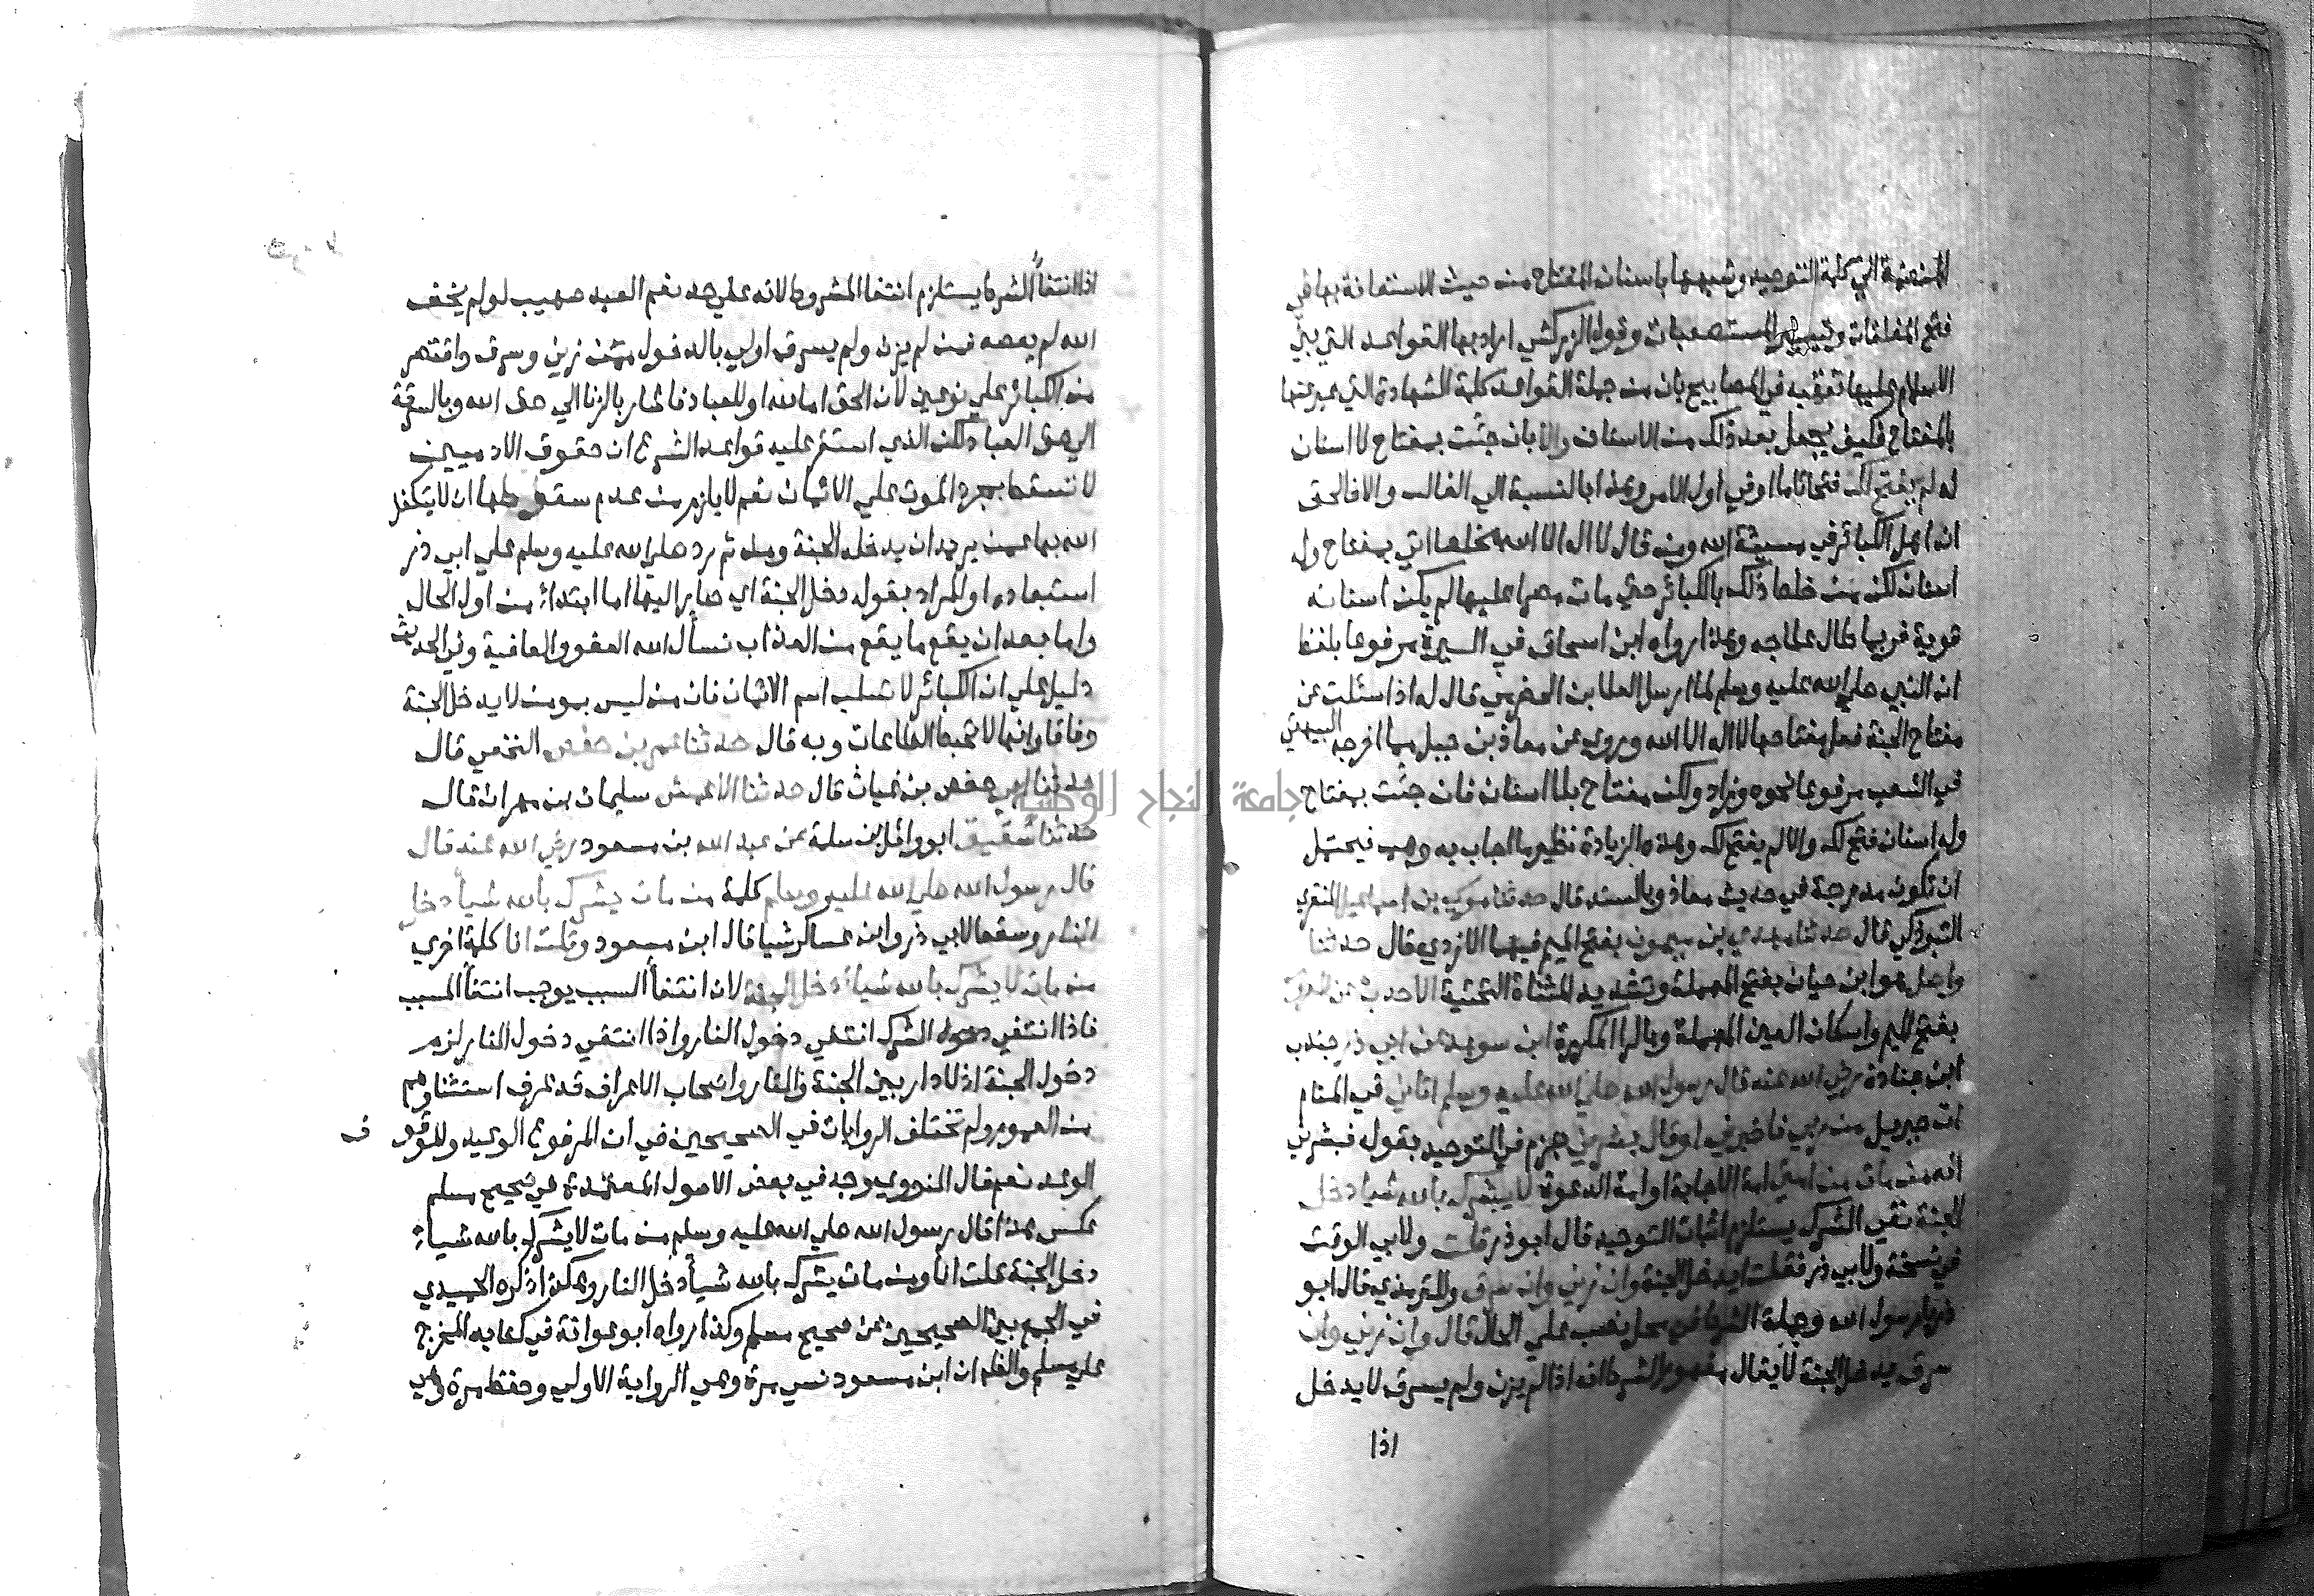 المنضمة الي كلمة التوحيد وشبهها باسنان المفتاح من حيث الاستعانة بها في
فتح المغلقات وتيسير المستصعبات وقول الزركشي اراد بها القواعد التي بني
الاسلام عليها تعقبه في المصابيح بان من جملة القواعد كلمة الشهادة التي عبر عنها
بالمفتاح فكيف يجعل بعد ذلك من الاسنان والا بان جئت بمفتاح لا اسنان
له لم يفتح لك فتحا تاما او في اول الامر وهذا بالنسبة الي الغالب والا فالحق
ان اهل الكبائر في مسيئة الله ومن قال لا اله الا الله مخلصا اتي بمفتاح وله
اسنان لكن من خلط ذلك بالكبائر حتي مات مصرا عليها لم يكن اسنانه
قوية فربما طال علاجه وهذا رواه ابن اسحاق في السيرة مرفوعا بلفظ
ان النبي صلي الله عليه وسلم لما ارسل العلا بن الحضرمي قال له اذا سئلت عن
مفتاح الجنة فقل مفتاحها لا اله الا الله وروي عن معاذ بن جبل مما اخرجه البيهقي
في الشعب مرفوعا نحوه وزاد ولكن مفتاح بلا اسنان فان جئت بمفتاح
وله اسنان فتح لك والا لم يفتح لك وهذه الزيادة نظير ما اجاب به وهب فيحتمل
ان تكون مدرجة في حديث معاذ وبالسند قال حدثنا موسي بن اسماعيل المنقري
التبوذكي قال حدثنا مهدي بن ميمون بفتح الميم فيهما الازدي قال حدثنا
واصل هو ابن حيان بفتح المهملة وتشديد المثناة التحتية الاحدب عن المعرور
بفتح الميم واسكان العين المهملة وبالرا المكررة ابن سويد عن ابي ذر جندب
ابن جنادة رضي الله عنه قال رسول الله صلي الله عليه وسلم اتاني في المنام
ات جبريل من ربي فاخبرني او قال بشرني جزم في التوحيد بقوله فبشرني
انه من مات من امتي امة الاجابة او امة الدعوة لا يشرك بالله شيا دخل
الجنة نفي الشرك يستلزم اثبات التوحيد قال ابو ذر قلت ولابي الوقت
في نسخة ولابي ذر فقلت ايدخل الجنة وان زني وان سرق وللترمذي قال ابو
ذر يارسول الله وجملة الشرط في محل نصب علي الحال قال وان زني وان
سرق يدخل الجنة لا يقال مفهوم الشرط انه اذا لم يزن ولم يسرق لا يدخل
اذا
اذا انتفاً الشرط يستلزم انتفا المشروط لانه علي حد نعم العبد صهيب لو لم يخف
الله لم يعصه فمن لم يزن ولم يسرق اولي بالدخول ممن زني وسرق واقتصر
من الكبائر علي نوعين لان الحق اما لله او للعباد فاشار بالزنا الي حق الله وبالسرقة
الي حق العباد لكن الذي استقر عليه قواعد الشرع ان حقوق الادميين
لا تسقط بمجرد الموت علي الايمان نعم لا يلزم من عدم سقوطها ان لا يتكفل
الله بها عمن يريد ان يدخله الجنة ومن ثم رد صلي الله عليه وسلم علي ابي ذر
استبعاده او المراد بقوله دخل الجنة اي صاير اليها اما ابتداءً من اول الحال
واما بعد ان يقع ما يقع من العذاب نسأل الله العفو والعافية وفي الحديث
دليل علي ان الكبائر لا تسلب اسم الايمان فان من ليس بمومن لا يدخل الجنة
وفاقا وانها لا تحبط الطاعات وبه قال حدثنا عمر بن حفص النخعي قال
حدثنا ابي حفص بن غياث قال حدثنا الاعمش سليمان بن مهران قال
حدثنا شقيق ابو وائل بن سلمة عن عبد الله بن مسعود رضي الله عنه قال
قال رسول الله صلي الله عليه وسلم كلمة من مات يشرك بالله شياً دخل
النار وسقط لابي ذر وابن عساكر شيا قال ابن مسعود وقلت انا كلمة اخري
من مات لا يشرك بالله شيأ دخل الجنة لان انتفاً السبب يوجب انتفاً المسبب
فاذا انتفي دعوي الشرك انتفي دخول النار واذا انتفي دخول النار لزم
دخول الجنة اذ لا دار بين الجنة والنار واصحاب الاعراف قد عرف استثناوهم
من العموم ولم تختلف الروايات في الصحيحين في ان المرفوع الوعيد والموقوف
الوعد نعم قال النووي وجد في بعض الاصول المعتمدة من صحيح مسلم
عكس هذا قال رسول الله صلي الله عليه وسلم من مات لا يشرك بالله شياً
دخل الجنة قلت انا ومن مات يشرك بالله شيأ دخل النار وهكذا ذكره الحميدي
في الجمع بين الصحيحين عن صحيح مسلم وكذا رواه ابو عوانة في كتابه المخرج
علي مسلم والظاهر ان ابن مسعود نسي مرة وهي الرواية الاولي وحفظ مرة وهي
جامعة النجاح الوطنية